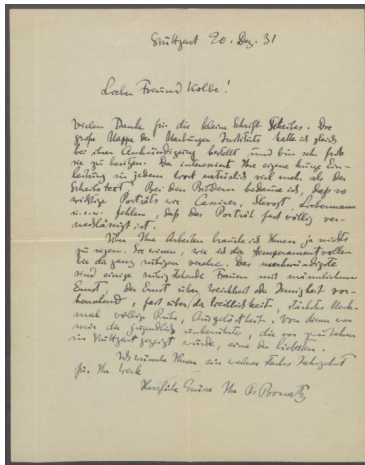 Stuttgart 20. Dez. 31
Lieber Freund Kolbe!
Vielen Dank für die kleine Schrift Scheibes. Die
große Mappe des Marburger Instituts hatte ich gleich
bei ihrer Ankündigung bestellt und bin sehr froh
sie zu besitzen. Da interessiert Ihre eigene kurze Ein-
leitung in jedem Wort natürlich viel mehr als der
Scheibetext. Bei den Bildern bedaure ich, daß so
wichtige Porträts wie Cassirer, Slevogt, Liebermann
u.s.w. fehlen, daß das Porträt fast völlig ver-
nachlässigt ist.
Über Ihre Arbeiten brauche ich Ihnen ja nichts
zu sagen. Sie wissen, wie ich die temperamentvollen
wie die ganz ruhigen verehre. Das merkwürdigste
sind einige ruhig stehende Frauen mit männlichem
Ernst, der Ernst über Weichheit die Innigkeit vor-
kommend, fast über die Weiblichkeit, stärkstes Merk-
mal völlige Ruhe, Ausgelöstheit. Von denen war
mir die jugendlich unberührte, die vor
in Stuttgart gezeigt wurde, eine der liebsten.
Ich wünsche Ihnen ein weiteres Jahrzehnt
für Ihr Werk
Herzliche Grüße Ihr Bonatz